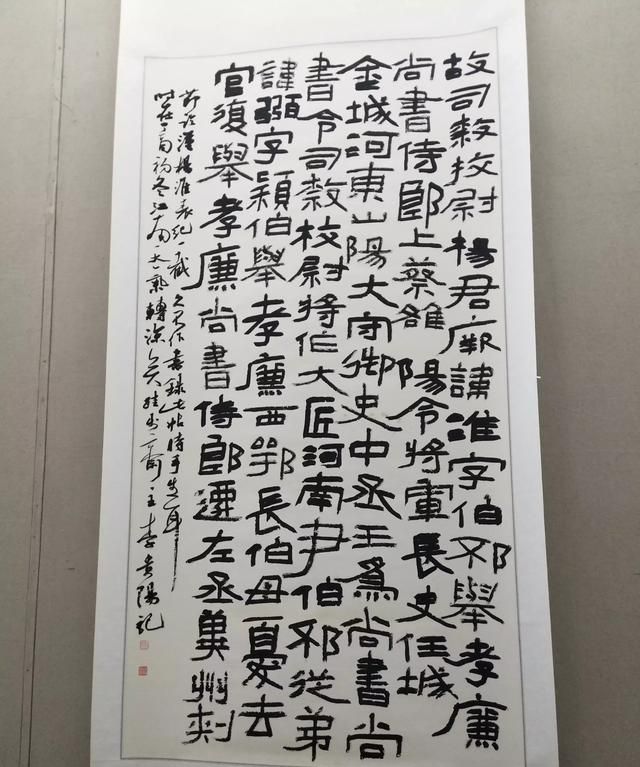 故司隸校尉楊君厥諱淮字伯邳舉孝廉
尚書侍郎上蔡雒陽令將軍長史任城
金城河東山陽大守御史中丞三為尚書尚
書令司隸校尉將作大匠河南尹伯邳從弟
諱弼字穎伯舉孝廉西鄂長伯母憂去
官復舉孝廉尚書侍郎遷左丞冀州刺
節臨漢楊淮表紀一 久不作書録此帖時手生耳
時在丁酉初冬江南 轉涼 主李貴陽記